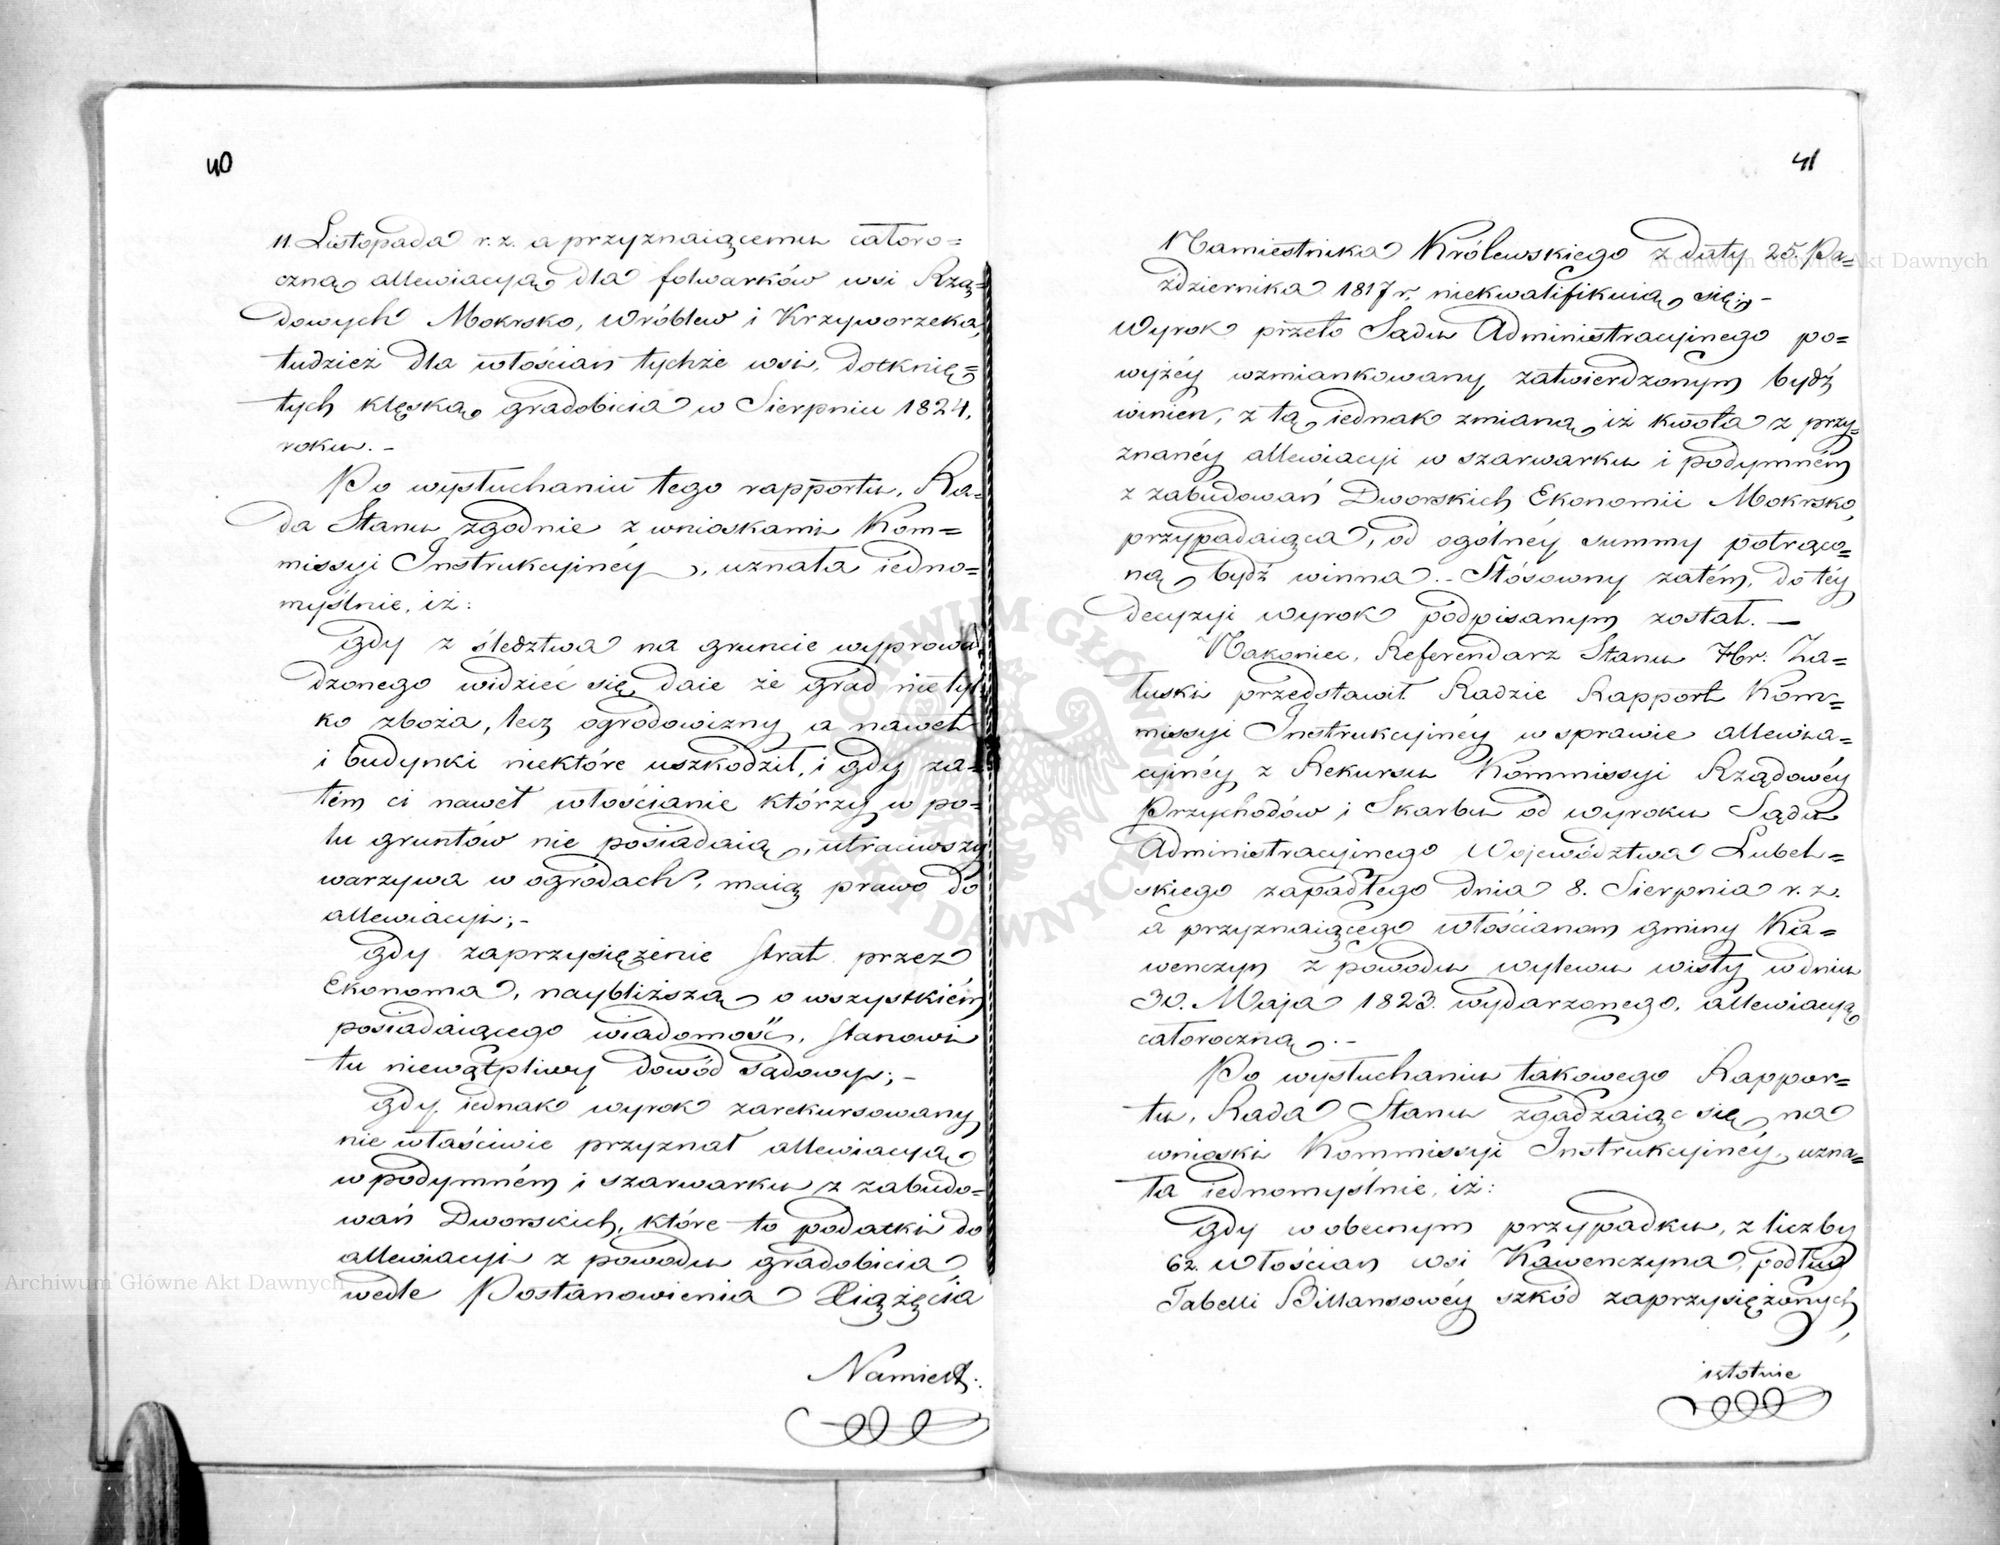 40
11 Listopada r. z. a przyznaiącemu całoro=
czną allewiacyą dla folwarków wsi Rzą=
dowych Mokrsko, Wróblew i Krzyworzeka,
tudzież dla włościan tychże wsi, dotknię=
tych klęską gradobicia w Sierpniu 1824.
roku. –
Po wysłuchaniu tego rapportu, Ra=
da Stanu zgodnie z wnioskami Kom=
missyi Instrukcyinéy, uznała iedno=
myślnie, iż:
Gdy z śledztwa na gruncie wyprowa
dzonego widzieć się daie że grad nietyl
ko zboża, lecz ogrodowizny a nawet
i budynki niektóre uszkodził, i gdy za=
tém ci nawet włościanie którzy w po=
lu gruntów nie posiadaią, utraciwszy
warzywa w ogrodach, maią prawo do
allewiacyi; –
Gdy zaprzysiężenie strat przez
Ekonoma, naybliższą o wszystkiém
posiadaiącego wiadomość, stanowi
tu niewątpliwy dowód sądowy; –
Gdy iednak wyrok zarekursowany
nie właściwie przyznał allewiacyą
w podymném i szarwarku z zabudo=
wań Dworskich, które to podatki do
allewiacyi z powodu gradobicia
wedle Postanowienia Xiążęcia
Namiest:
41
Namiestnika Królewskiego z daty 25. Pa=
ździernika 1817 r. niekwalifikuią się; –
Wyrok przeto Sądu Administracyinego po=
wyżéy wzmiankowany, zatwierdzonym bydź
winien, z tą iednak zmianą, iż kwota z przy=
znanéy allewiacyi w szarwarku i podymném
z zabudowań Dworskich Ekonomii Mokrsko,
przypadaiąca, od ogólnéy summy potrąco=
ną bydź winna. – Stósowny zatém, do téy
decyzyi wyrok podpisanym został. —
Nakoniec, Referendarz Stanu Hr. Za=
łuski przedstawił Radzie Rapport Kom=
missyi Instrukcyinéy w sprawie allewia=
cyinéy z Rekursu Kommissyi Rządowéy
Przychodów i Skarbu od wyroku Sądu
Administracyinego Województwa Lubel=
skiego zapadłego dnia 8. Sierpnia r. z.
a przyznaiącego włościanom gminy Ka=
wenczyn z powodu wylewu wisły w dniu
30. Maja 1823. wydarzonego, allewiacyą
całoroczną. –
Po wysłuchaniu takowego Rappor=
tu, Rada Stanu zgadzaiąc się na
wnioski Kommissyi Instrukcyinéy, uzna=
ła iednomyślnie, iż:
Gdy w obecnym przypadku, z liczby
62. włościan wsi Kawenczyna, podług
Tabelli Billansowéy szkód zaprzysiężonych,
istotnie
Archiwum Główne Akt Dawnych
Archiwum Główne Akt Dawnych
ARCHIWUM GŁÓWNE AKT DAWNYCH